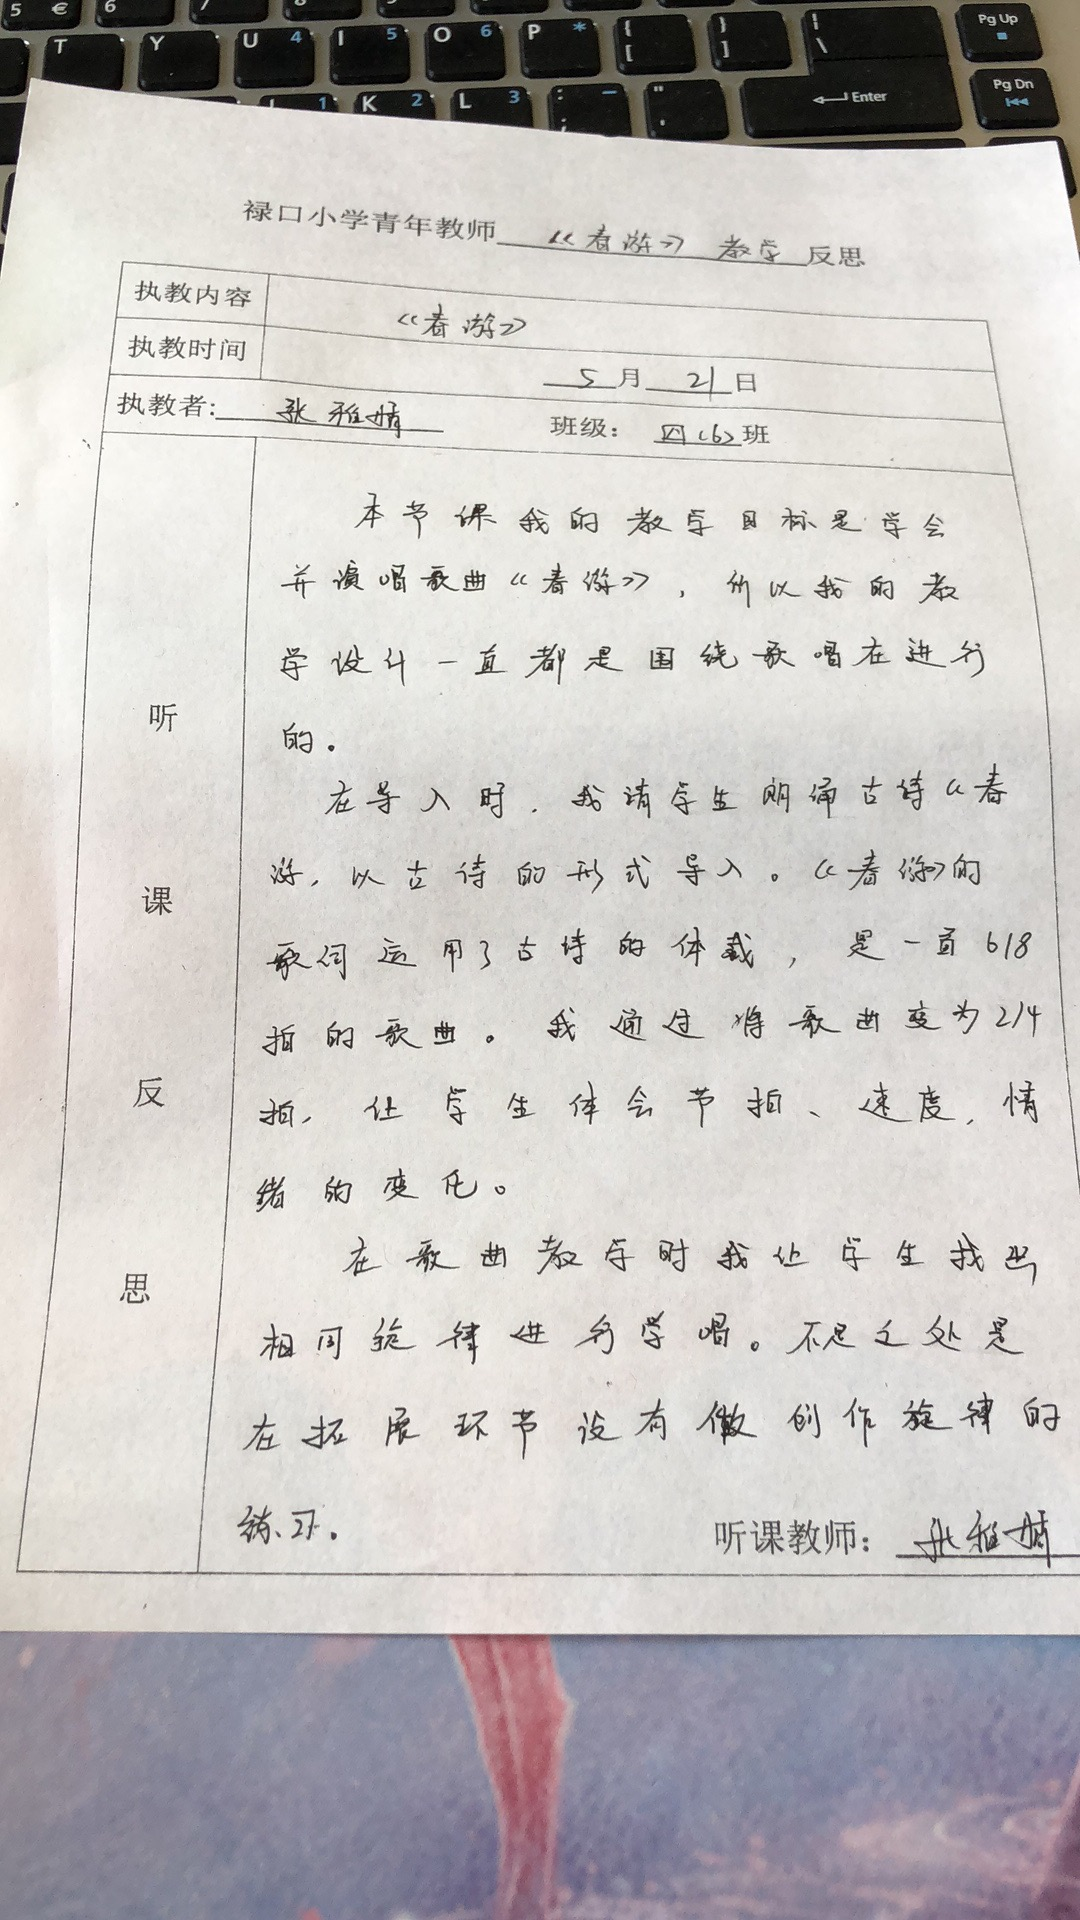 5 € 6 7 8 9 0
T Y U 4 I 5 O 6 P * { [ } ] | \ Pg Up
1 K 2 L 3 : ; " , Enter Pg Dn
禄口小学青年教师《春游》 教学 反思
执教内容 《春游》
执教时间 5 月 21 日
执教者: 张雅婧 班级： 四(6) 班
听课反思
本节课我的教学目标是学会
并演唱歌曲《春游》，所以我的教
学设计一直都是围绕歌唱在进行
的。
在导入时，我请学生朗诵古诗《春
游，以古诗的形式导入。《春游》的
歌词运用了古诗的体裁，是一首6/8
拍的歌曲。我通过将歌曲变为2/4
拍，让学生体会节拍、速度，情
绪的变化。
在歌曲教学时我让学生找出
相同旋律进行学唱。不足之处是
在拓展环节没有做创作旋律的
练习。
听课教师： 张雅婧